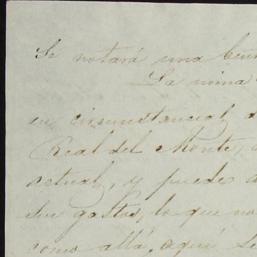 Se notará una
La mina
en circunstancial,
Real del Monte,
actual, y puede
sus gastos, lo que no
como allá, aquí se